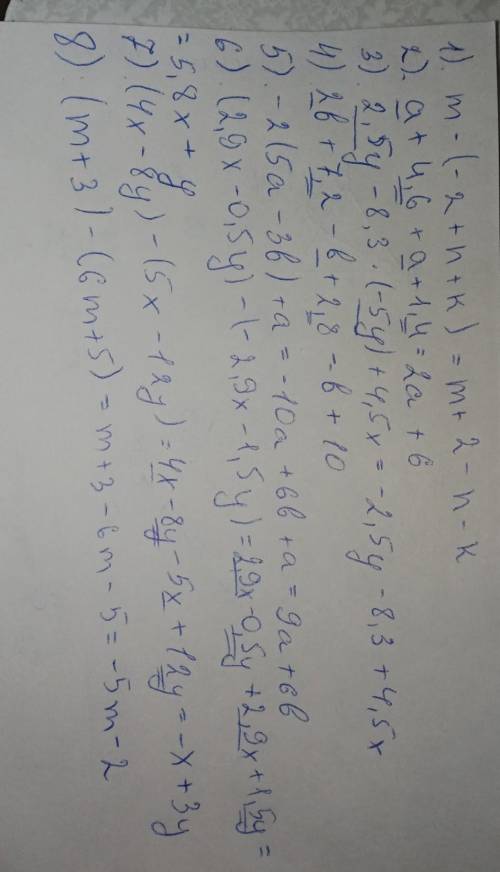 1). m - (-2 + n + k) = m + 2 - n - k
2). a + 4,6 + a + 1,4 = 2a + 6
3). 2,5y - 8,3 · (-5y) + 4,5x = -2,5y - 8,3 + 4,5x
4) 2b + 7,2 - b + 2,8 = b + 10
5) -2(5a - 3b) + a = -10a + 6b + a = 9a + 6b
6) (2,9x - 0,5y) - (-2,9x - 1,5y) = 2,9x - 0,5y + 2,9x + 1,5y =
= 5,8x + y
7) (4x - 8y) - (5x - 12y) = 4x - 8y - 5x + 12y = -x + 3y
8). (m + 3) - (6m + 5) = m + 3 - 6m - 5 = -5m - 2